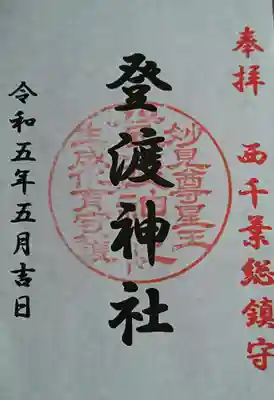 奉拝
西千葉総鎮守
登渡神社
妙見尊星王
令和五年五月吉日